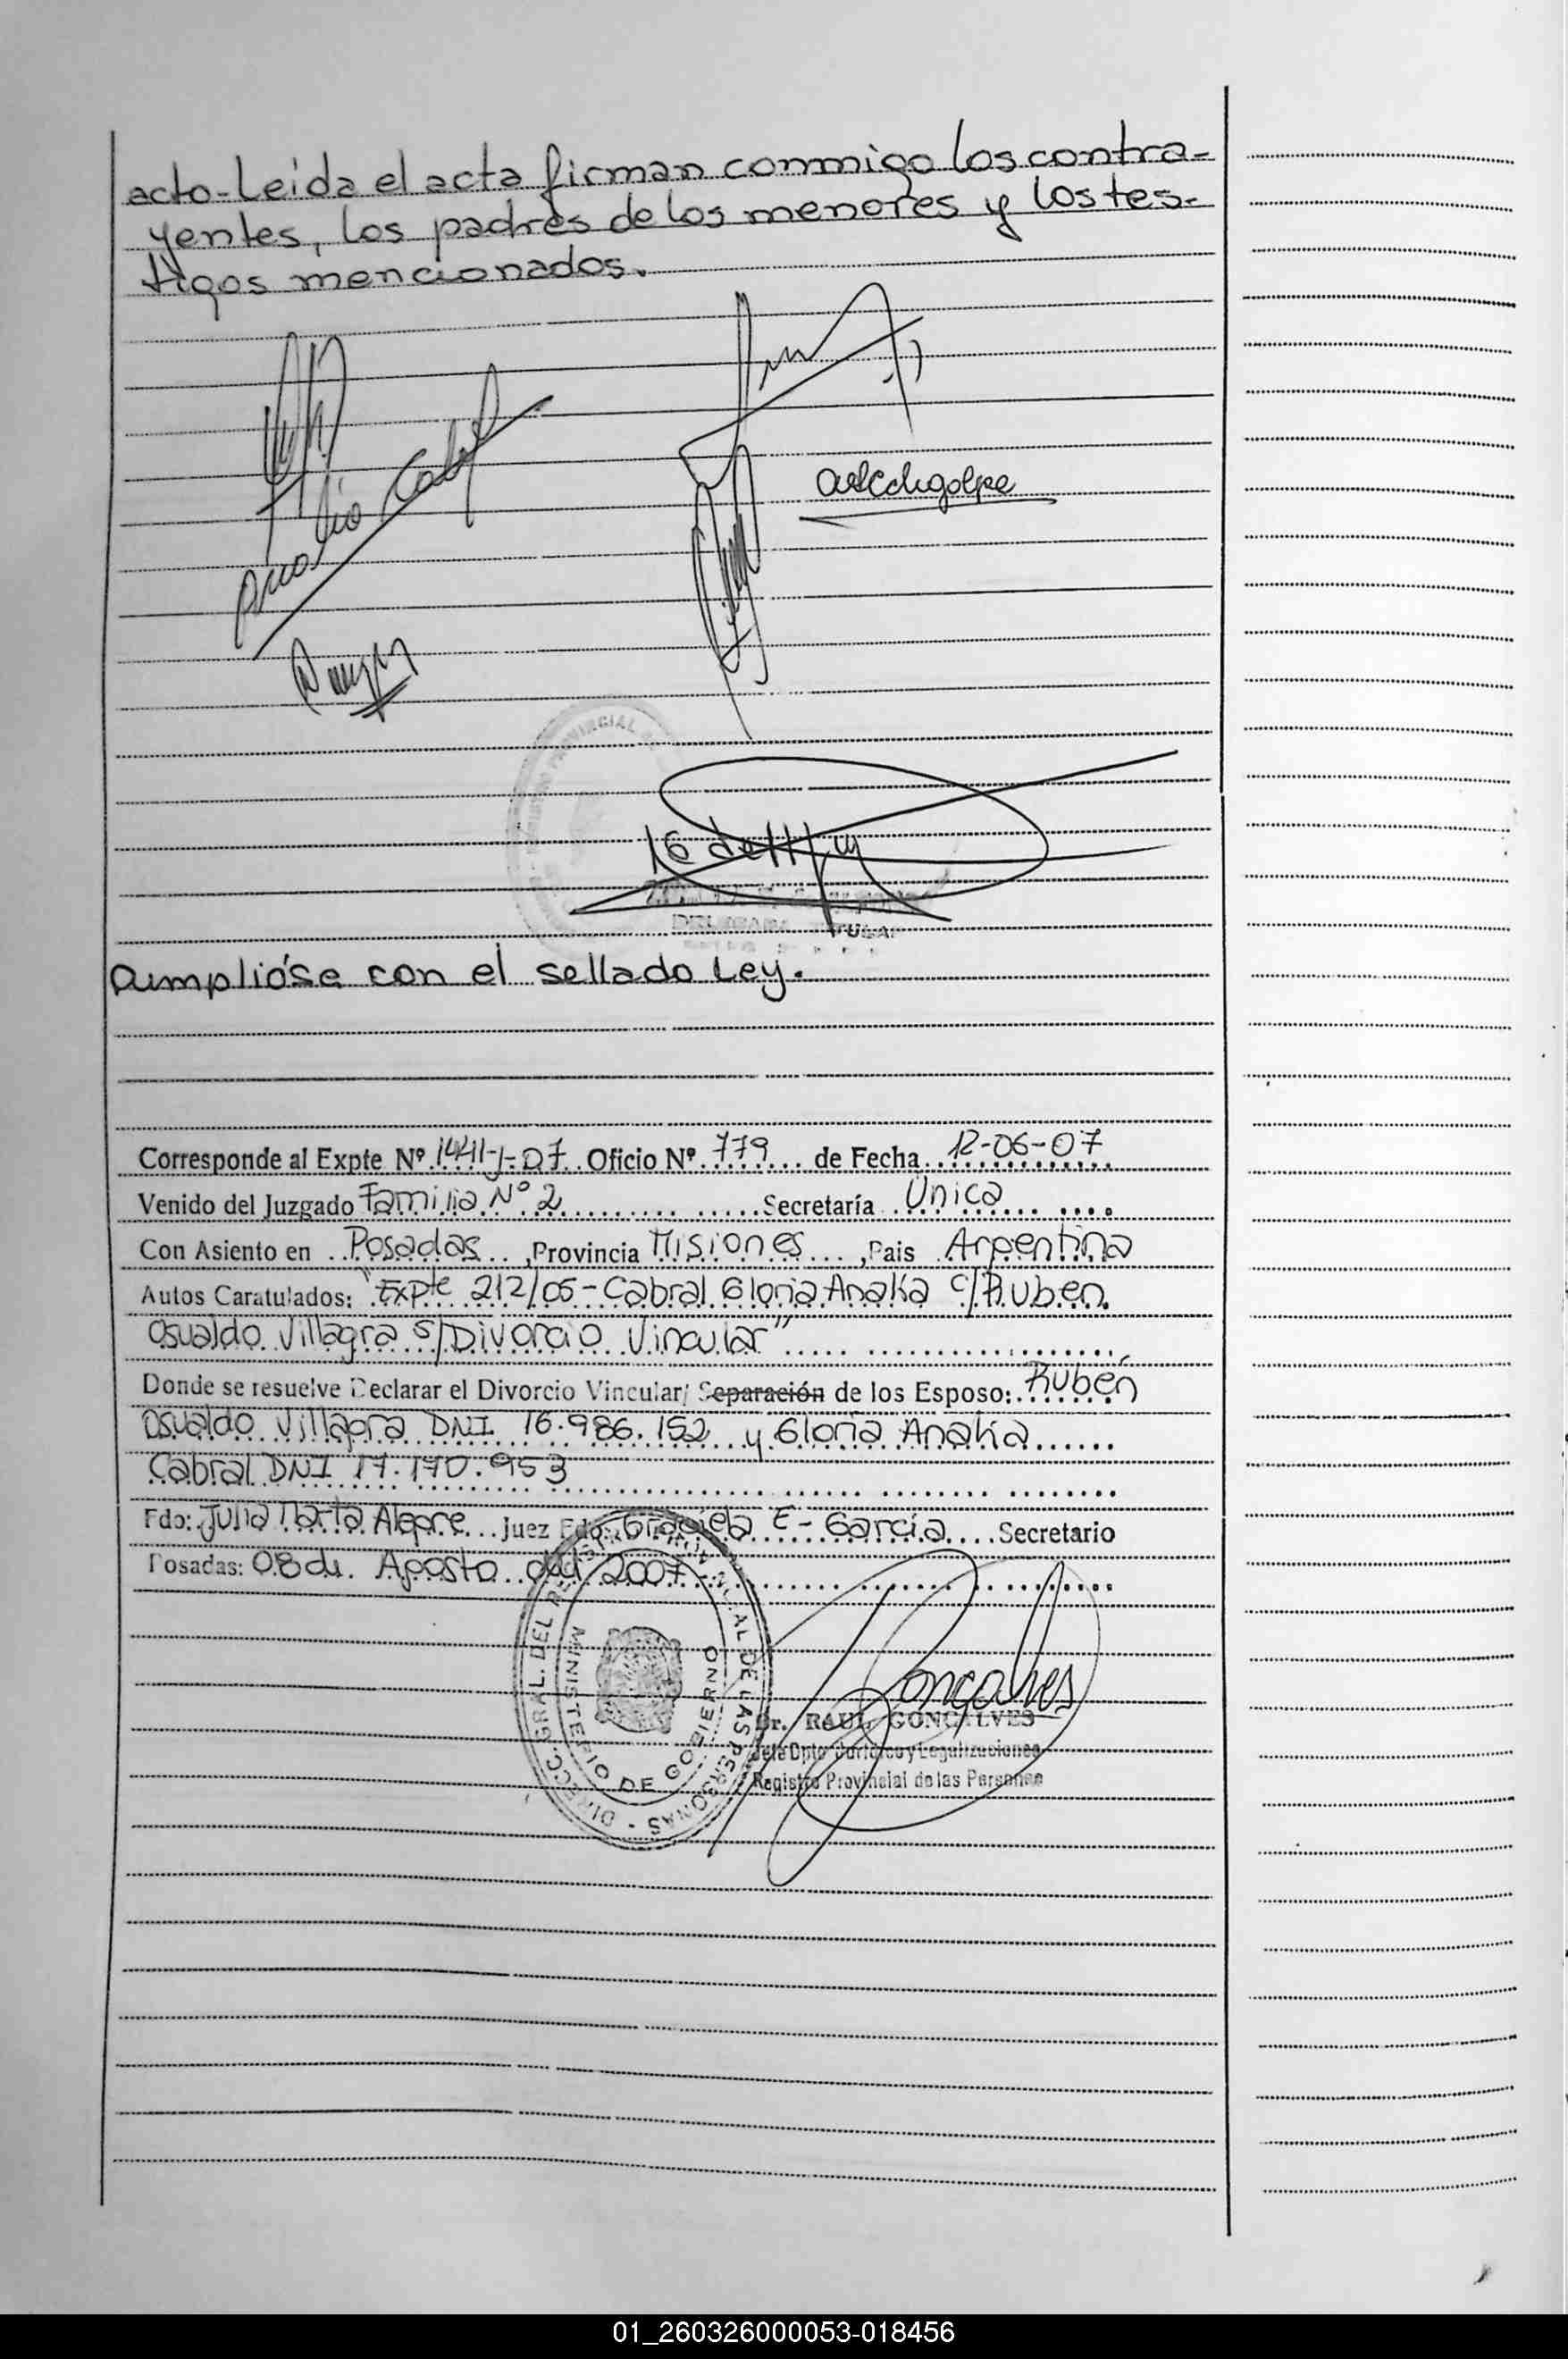 acto-Leida el acta firman conmigo los contra-
yentes, los padres de los menores y los tes-
tigos mencionados.
Cumplióse con el sellado Ley.
Corresponde al Expte Nº 1441-J-07 Oficio Nº 779 de Fecha 12-06-07
Venido del Juzgado Familia Nº 2 Secretaría Única
Con Asiento en Posadas, Provincia Misiones, Pais Argentina
Autos Caratulados: "Expte 212/05-Cabral Gloria Analia c/Ruben
Osvaldo Villagra s/Divorcio Vincular"
Donde se resuelve Declarar el Divorcio Vincular/ Separación de los Esposo: Rubén
Osvaldo Villagra DNI 16.986.152 y Gloria Analia
Cabral DNI 17.170.953
Fdo: Julia Marta Alegre Juez Fdo: Graciela E- Garcia Secretario
Posadas: 08 de Agosto del 2007-
DIRECC. GRAL. DEL REGISTRO PROVINCIAL DE LAS PERSONAS -
MINISTERIO DE GOBIERNO
Dr. RAUL GONCALVES
Jefe Dpto Jurídico y Legalizaciones
Registro Provincial de las Personas
01_260326000053-018456